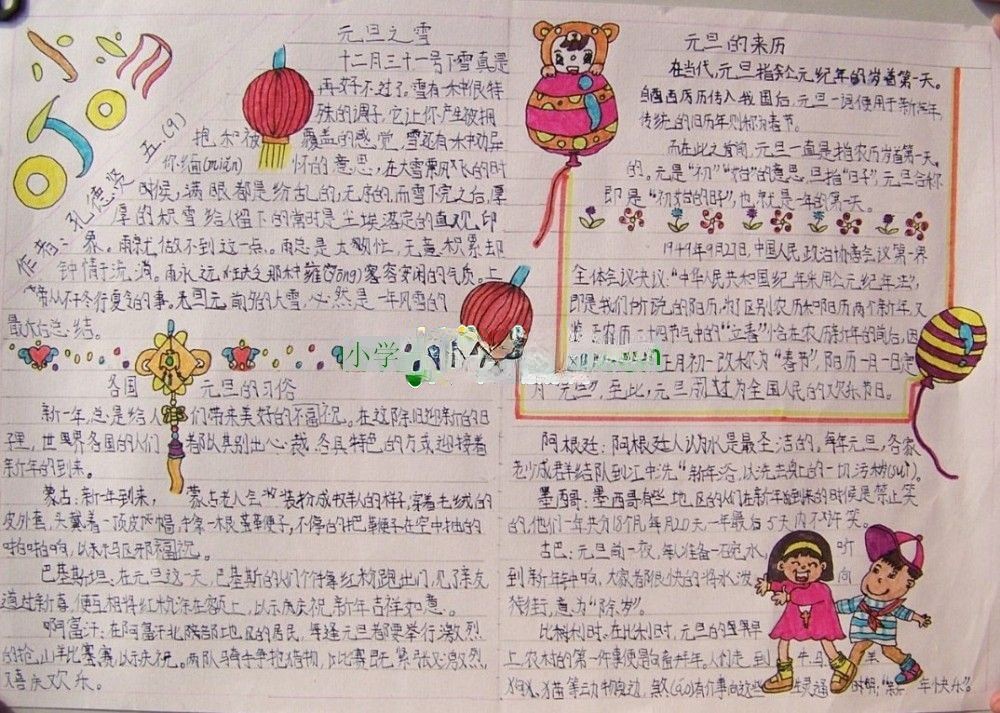 小报
五.(9)
作者:孔德贤
元旦之雪
十二月三十一号下雪真是
再好不过了,雪有一种很特
殊的调子,它让你产生被拥
抱和被覆盖的感觉,雪还有一种劝异
你缅(miǎn)怀的意思,在大雪乘风飞的时
时候,满眼都是纷乱的,无序的,而雪下完之后,厚
厚的积雪给人留下的常常是尘埃落定的直观印
界。雨就做不到这一点。雨总是太匆忙,无意积累却
钟情于流淌。雨永远欠缺之那种雍容(yōng)宽容安闲的气质。上
帝从不冬行夏令的事。来自元旦前的大雪,必然是一年风雪的
最大的总结。
小学
各国元旦的习俗
新一年,总是给人们带来美好的祝福。在这除旧迎新的日
子里,世界各国的人们都以其别出心裁、各具特色的方式迎接着
新年的到来。
蒙古:新年到来,蒙古老人会装扮成牧羊人的样子,穿着毛绒的
皮外套,头戴着一顶皮帽,手拿一根鞭子,不停的把鞭子在空中抽的
啪啪响,以示驱邪祝福。
巴基斯坦:在元旦这一天,巴基斯的人们个个拿红粉跑出门,见了亲友
道过新喜,便互相将红粉涂在额上,以示庆祝新年吉祥如意。
阿富汗:在阿富汗北部地区的居民,每逢元旦都要举行激烈
的抢山羊比赛,以示庆祝。两队骑手争抢猎物,比赛既紧张又激烈,
又喜庆欢乐。
元旦的来历
在当代,元旦指公元纪年的岁首第一天。
自西历传入我国后,元旦一词便用于新年,
传统的旧历年则称为春节。
而在此之前,元旦一直是指农历岁首第一天
的。元是“初”“始”的意思,旦指“日子”,元旦合称
即是“初始的日子”,也就是一年的第一天。
1949年9月27日,中国人民政治协商会议第一界
全体会议决议:“中华人民共和国纪年采用公元纪年法”,
即是我们所说的阳历,为了区别农历和阳历两个新年,又
鉴于农历二十四节气中的“立春”恰在农历新年的前后,因
正月初一改称为“春节”,阳历一月一日定
为“元旦”,至此,元旦成为全国人民的欢乐节日。
阿根廷:阿根廷人认为水是最圣洁的。每年元旦,各家
老少成群结队到江中洗“新年浴”,以洗去身上的一切污秽(suì)。
墨西哥:墨西哥有些地区的人们在新年到来的时候是禁止笑
的,他们一年共分18个月,每月20天,一年最后5天内不许笑。
古巴:元旦前一夜,每人准备一碗水,听
到新年钟响,大家都很快的将水泼向
街,意为“除岁”。
比利时:在比利时,元旦的早
上,农村的第一件事便是向畜拜年。人们走到牛、马、羊
狗、猫等动物身边,煞(shà)有介事向这些生灵通明:“新年快乐”。